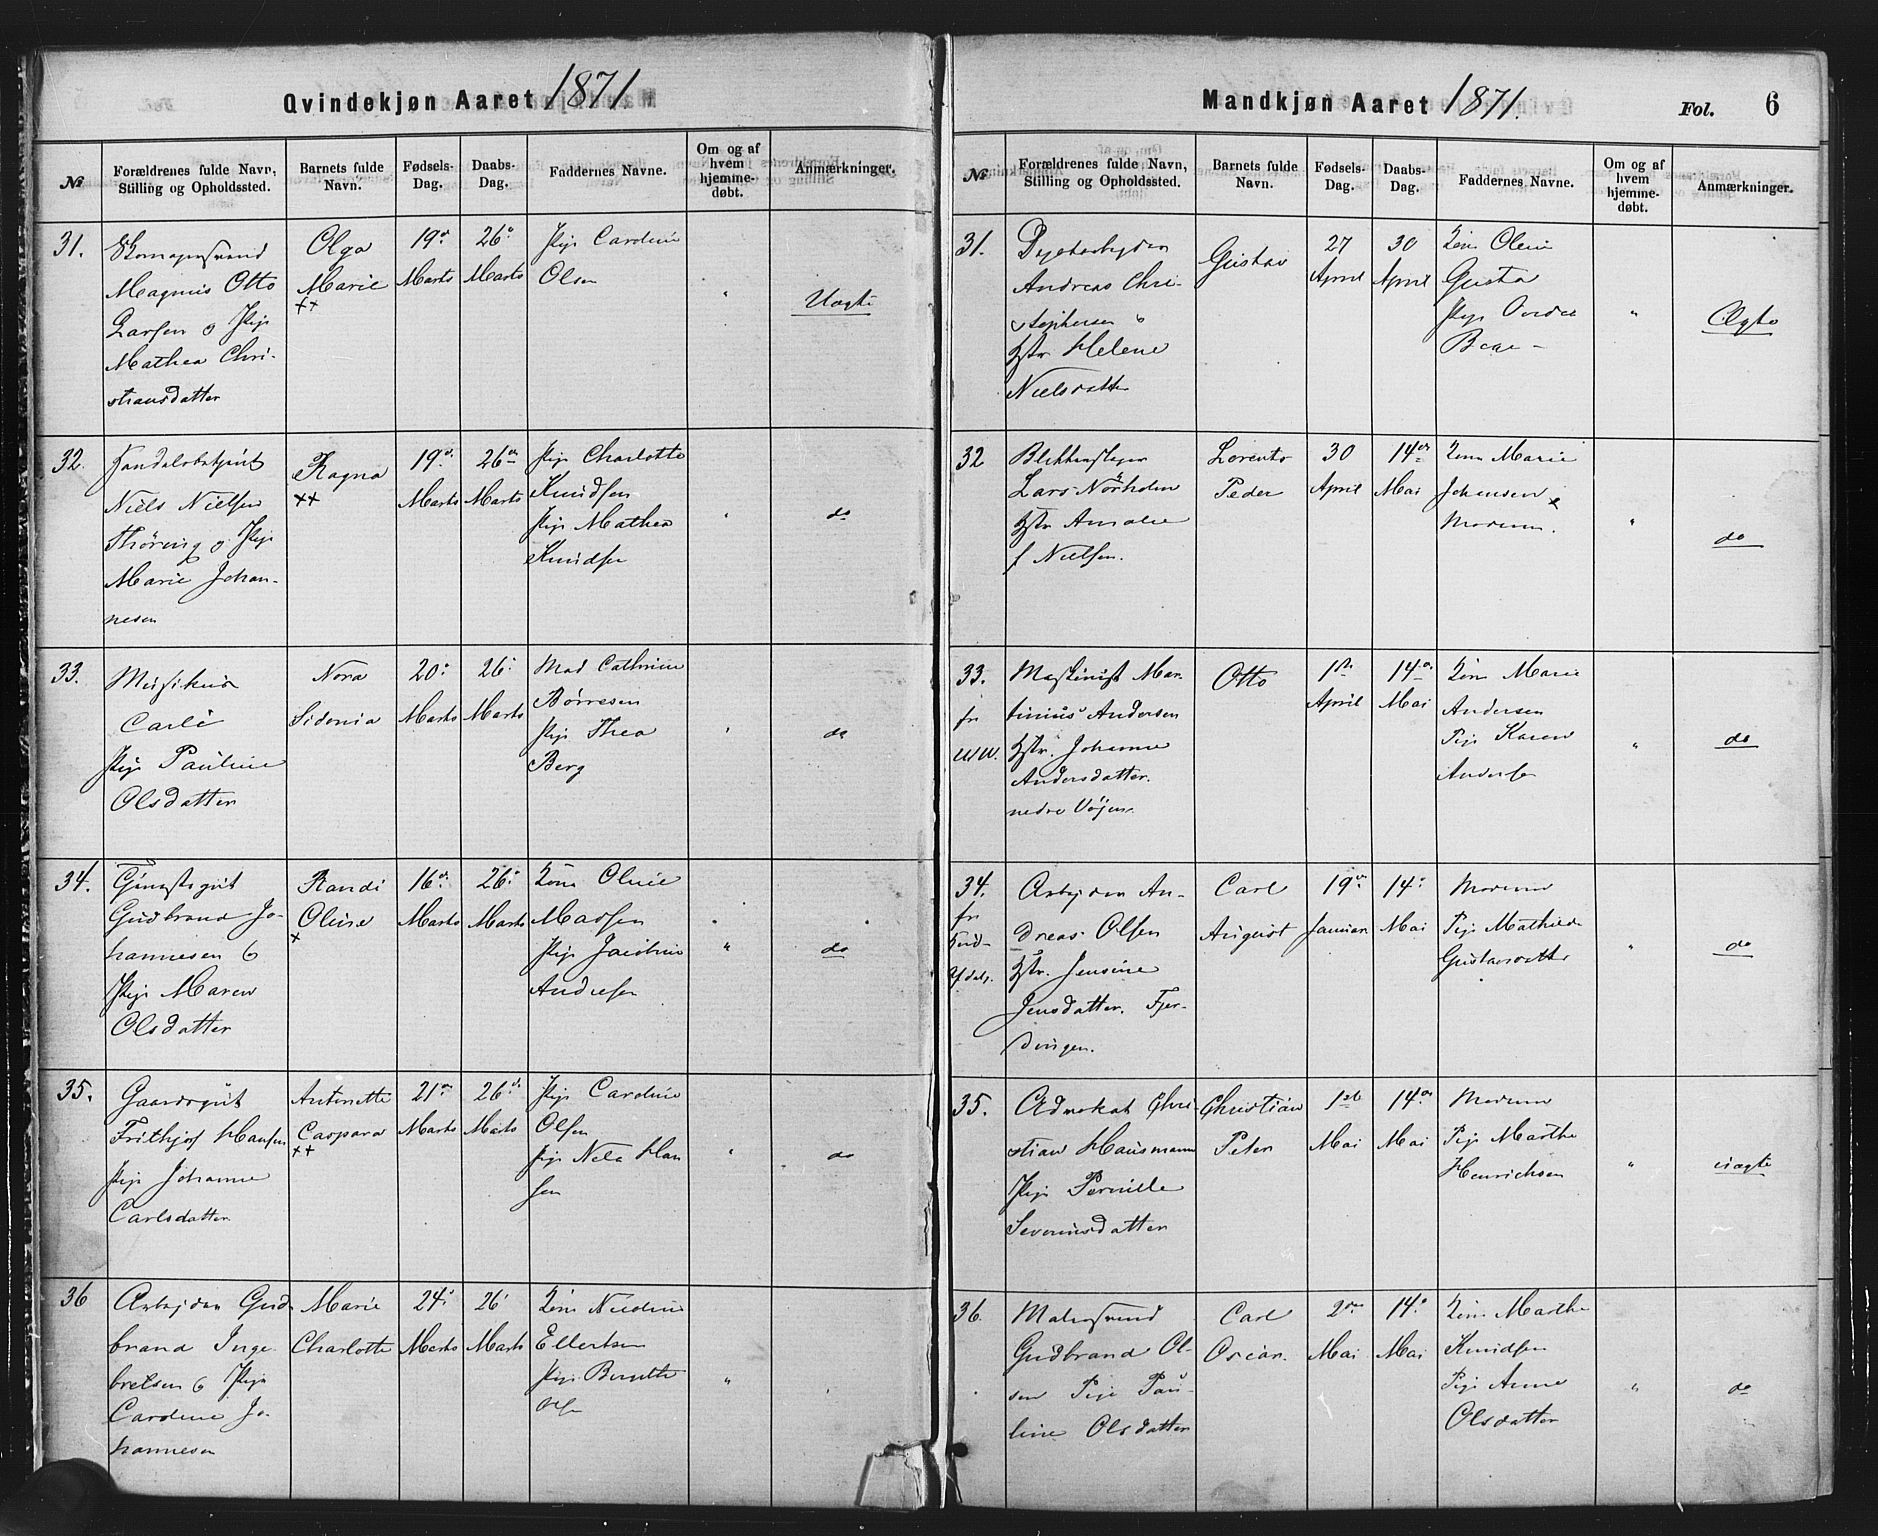 Qvindekjøn Aaret 1871
№
Forældrenes fulde Navn, Stilling og Opholdssted.
Barnets fulde Navn.
Fødsels-Dag.
Daabs-Dag.
Faddernes Navne.
Om og af hvem hjemme-døbt.
Anmærkninger.
31.
Magnus Otto
Larsen o Pige
Mathea Chri-
stiansdatter
Olga
Marie
++
19
Marts
26
Marts
Pige Caroline
Olsen
"
Uægte
32.
Niels Nielsen
Thøring o Pige
Marie Johan-
nesen
Ragna
++
19
Marts
26
Marts
Pige Charlotte
Knudsen
Pige Mathea
Knudsen
"
do
33.
Musikus
Carli
Pige Pauline
Olsdatter
Nora
Sidonia
20
Marts
26
Marts
Mad Cathrine
Børresen
Pige Thea
Berg
"
do
34.
Gudbrand Jo-
hannesen o
Pige Maren
Olsdatter
Randi
Oline
+
16
Marts
26
Marts
Kone Oline
Madsen
Pige Jacobine
Andresen
"
do
35.
Gaardsgut
Frithjof Hansen
Pige Johanne
Carlsdatter
Antonette
Caspara
++
21
Marts
26
Marts
Pige Caroline
Olsen
Pige Nela Han
sen
"
do
36
Arbejder Gud-
brand Inge-
bretsen o Pige
Caroline Jo-
hannesen
Marie
Charlotte
24
Marts
26
Marts
Ellertsen
Pige Bergitte
Ols
"
Mandkjøn Aaret 1871.
Fol. 6
№
Forældrenes fulde Navn, Stilling og Opholdssted.
Barnets fulde Navn.
Fødsels-Dag.
Daabs-Dag.
Faddernes Navne.
Om og af hvem hjemme-døbt.
Anmærkninger.
31.
Andreas Chri-
stophersen o
Hstr. Helene
Nielsdatter
Gustav
27
April
30
April
Kone Oline
Gusta
Pige
"
Ægte
32
Lars Nørholm
Hstr Amalie
f Nielsen.
Lorents
Peder
30
April
14
Mai
Kone Marie
Johansen
Moderen.
"
do
33.
fri
Maskinist Mar-
tinius Andersen
Hstr. Johanne
Andersdatter.
nedre Vøjen.
Otto
1ste
April
14
Mai
Kone Marie
Andersen
Pige Karen
Andersen
"
do
34.
fri
Arbejder An-
dreas Olsen
Hstr. Jensine
Jensdatter. Fjer-
dingen.
Carl
August
19
Januar
14
Mai
Moderen
Pige Mathilde
Gustavsdatter
"
do
35.
Advokat Chri-
stian Hausmann
Pige Pernille
Severinsdatter
Christian
Peter
1ste
Mai
14
Mai
Moderen
Pige Marthe
Henrichsen
"
uægte
36.
Malersvend
Gudbrand Ol-
sen Pige Pau-
line Olsdatter
Carl
Oscar.
2
Mai
14
Mai
Kone Marthe
Knudsen
Pige Anne
Olsdatter
"
do